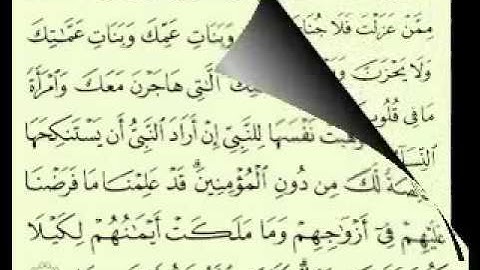 مِمَّنْ عَزَلْتَ فَلَا جُنَا وَبَنَاتِ عَمِّكَ وَبَنَاتِ عَمَّاتِكَ
وَلَا يَحْزَنَّ ٱلَّٰتِى هَاجَرْنَ مَعَكَ وَٱمْرَأَةً
مَا فِى قُلُو وَهَبَتْ نَفْسَهَا لِلنَّبِىِّ إِنْ أَرَادَ ٱلنَّبِىُّ أَن يَسْتَنكِحَهَا
ٱلنِّسَا صَةً لَّكَ مِن دُونِ ٱلْمُؤْمِنِينَ ۗ قَدْ عَلِمْنَا مَا فَرَضْنَا
عَلَيْهِمْ فِىٓ أَزْوَٰجِهِمْ وَمَا مَلَكَتْ أَيْمَٰنُهُمْ لِكَيْلَا